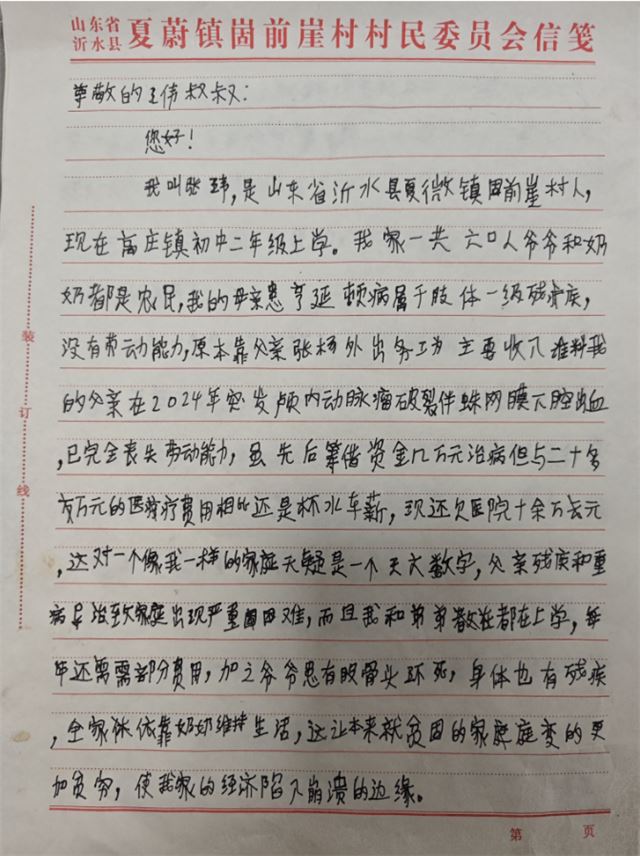 山东省
沂水县
夏蔚镇崮前崖村村民委员会信笺
尊敬的王伟叔叔：
您好！
我叫张玮，是山东省沂水县夏微镇固前崖村人，
现在高庄镇初中二年级上学。我家一共六口人爷爷和奶
奶都是农民，我的母亲患亨延顿病属于肢体一级残疾，
没有劳动能力，原本靠父亲张杨外出务工为主要收入谁料我
的父亲在2024年突发颅内动脉瘤破裂伴蛛网膜下腔出血
，已完全丧失劳动能力，虽先后筹借资金几万元治病但与二十多
万元的医疗费用相比还是杯水车薪，现还欠医院十余万元
，这对一个像我一样的家庭无疑是一个天大数字，父亲残疾和重
病导致家庭出现严重困难，而且我和弟弟都在上学，每
年还需部分费用，加之爷爷患有股骨头坏死，身体也有残疾
，全家依靠奶奶维持生活，这让本来就贫困的家庭变的更
加贫穷，使我家的经济陷入崩溃的边缘。
装
订
线
第 页